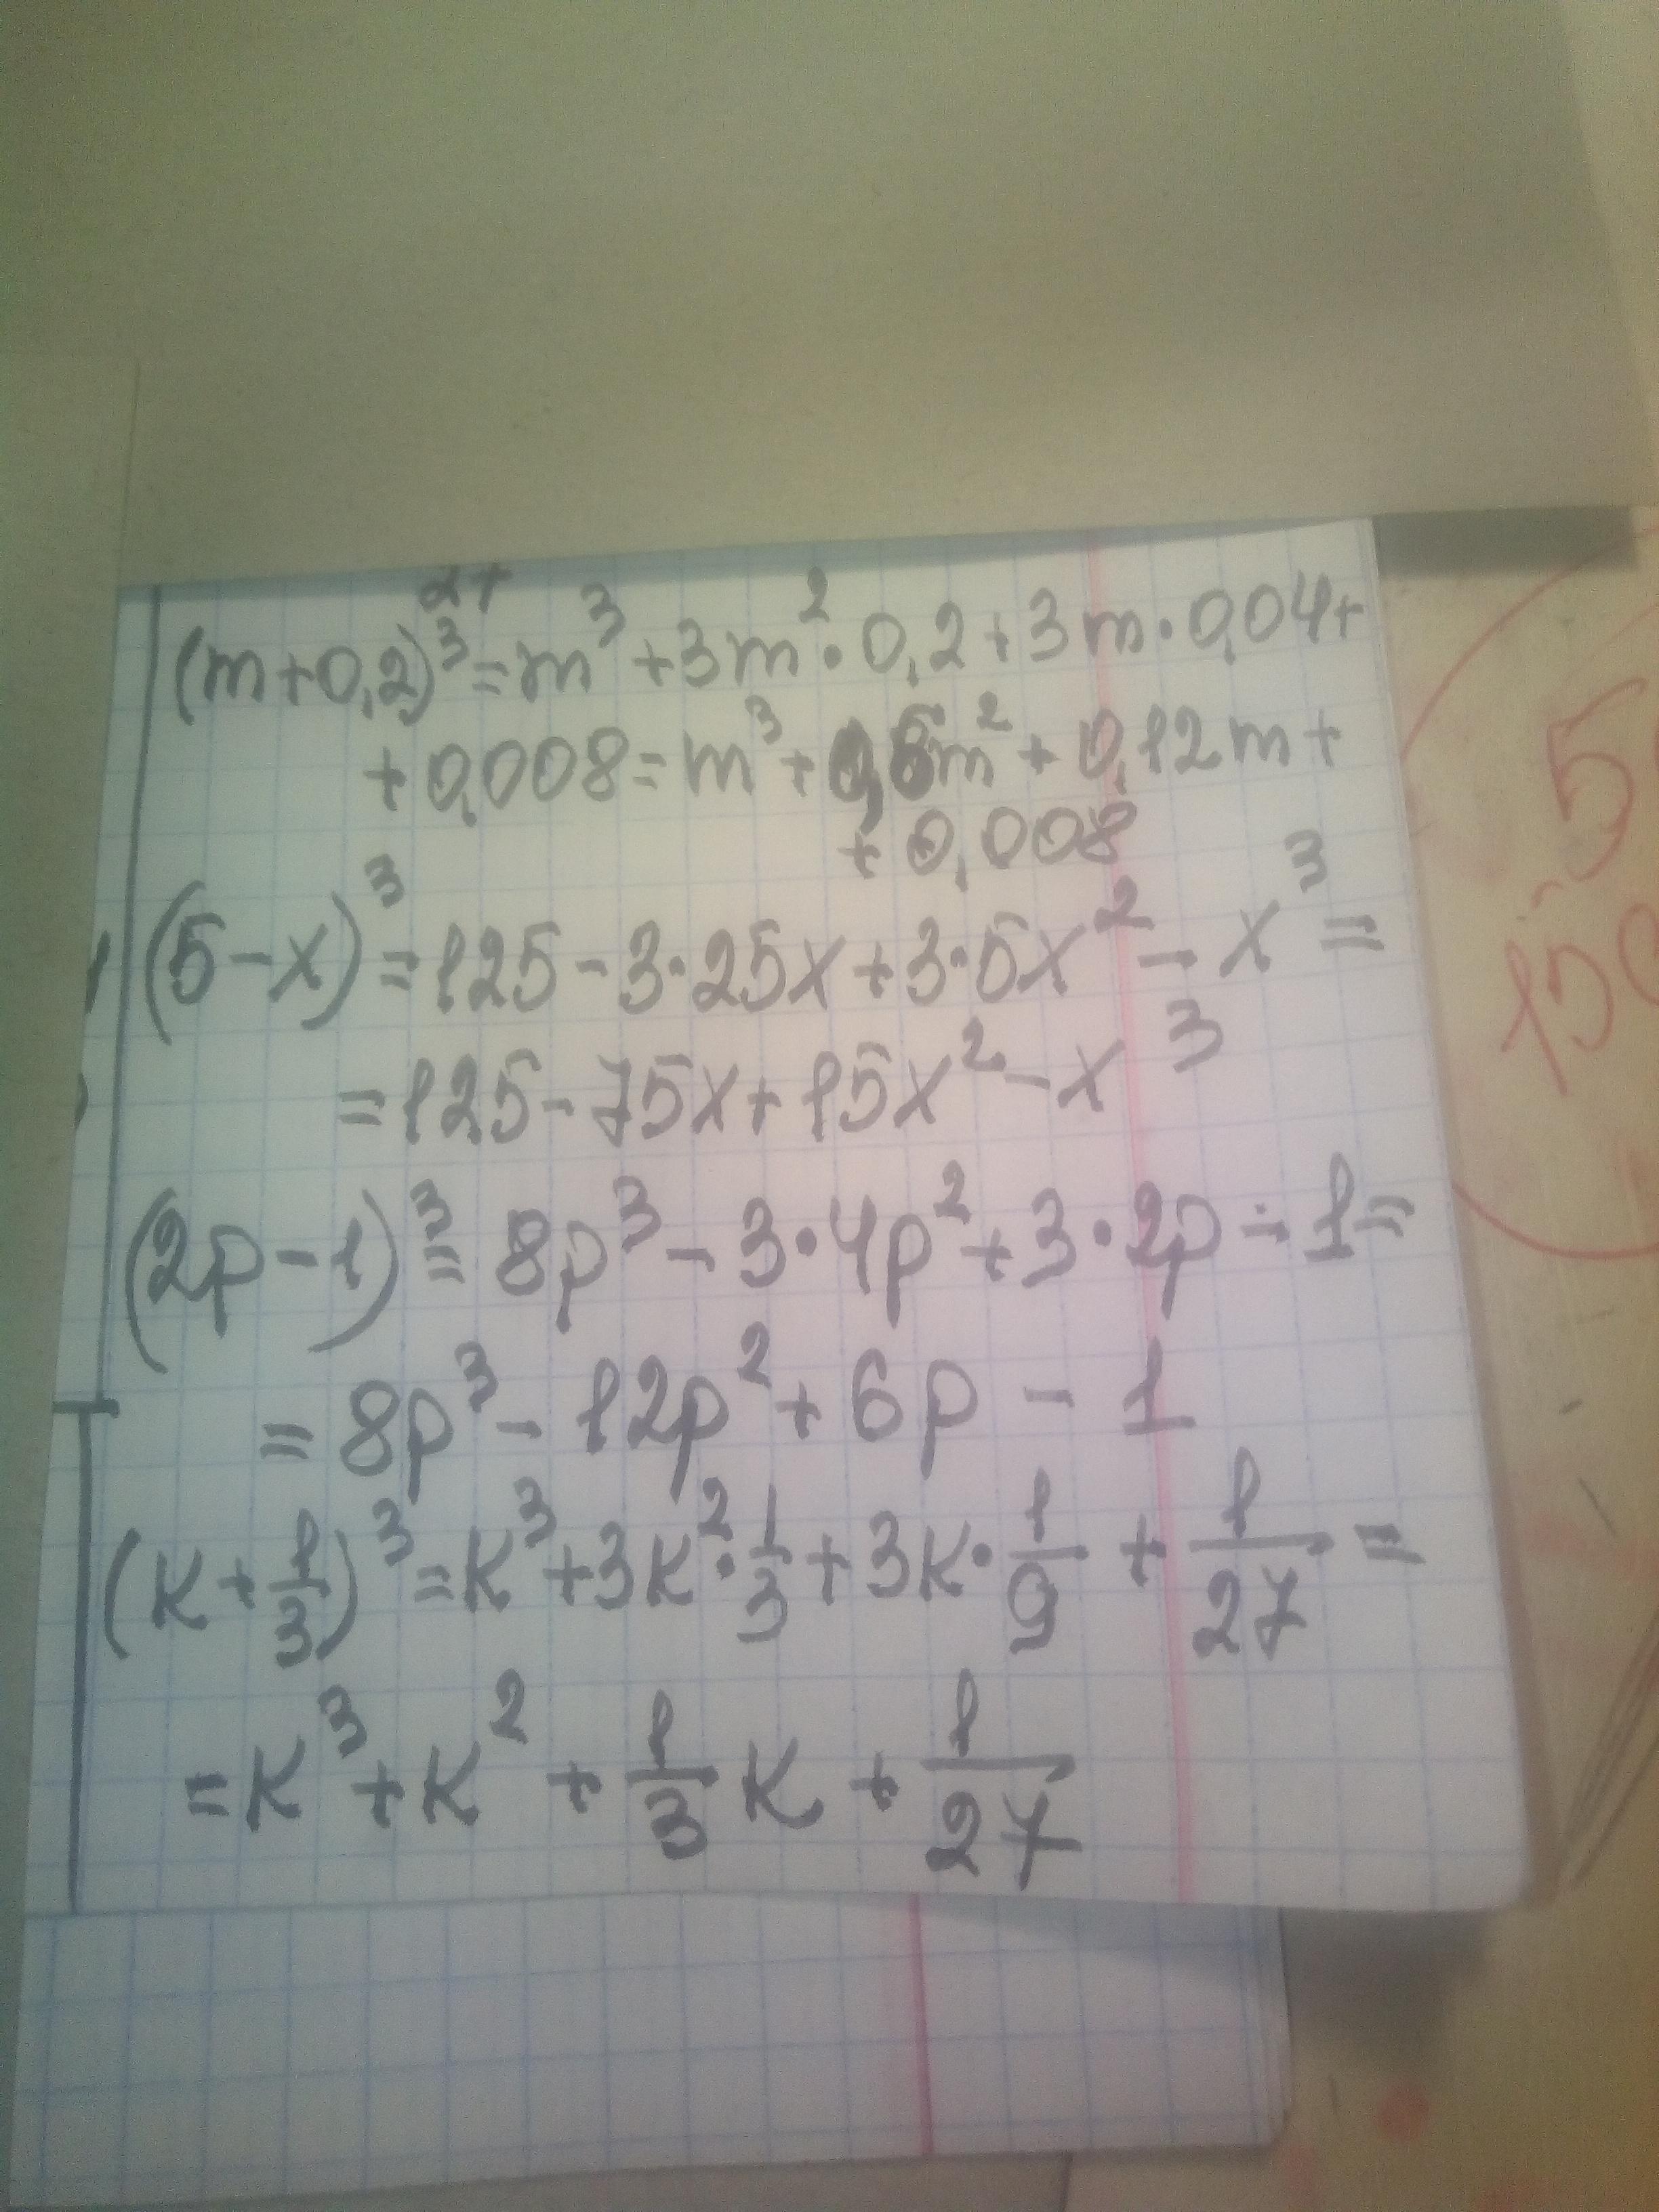 (m+0,2)³=m³+3m²·0,2+3m·0,04+
+0,008=m³+0,6m²+0,12m+
+0,008
(5-x)³=125-3·25x+3·5x²-x³=
=125-75x+15x²-x³
(2p-1)³=8p³-3·4p²+3·2p-1=
=8p³-12p²+6p-1
(к+1/3)³=к³+3к²·1/3+3к·1/9+1/27=
=к³+к²+1/3к+1/27